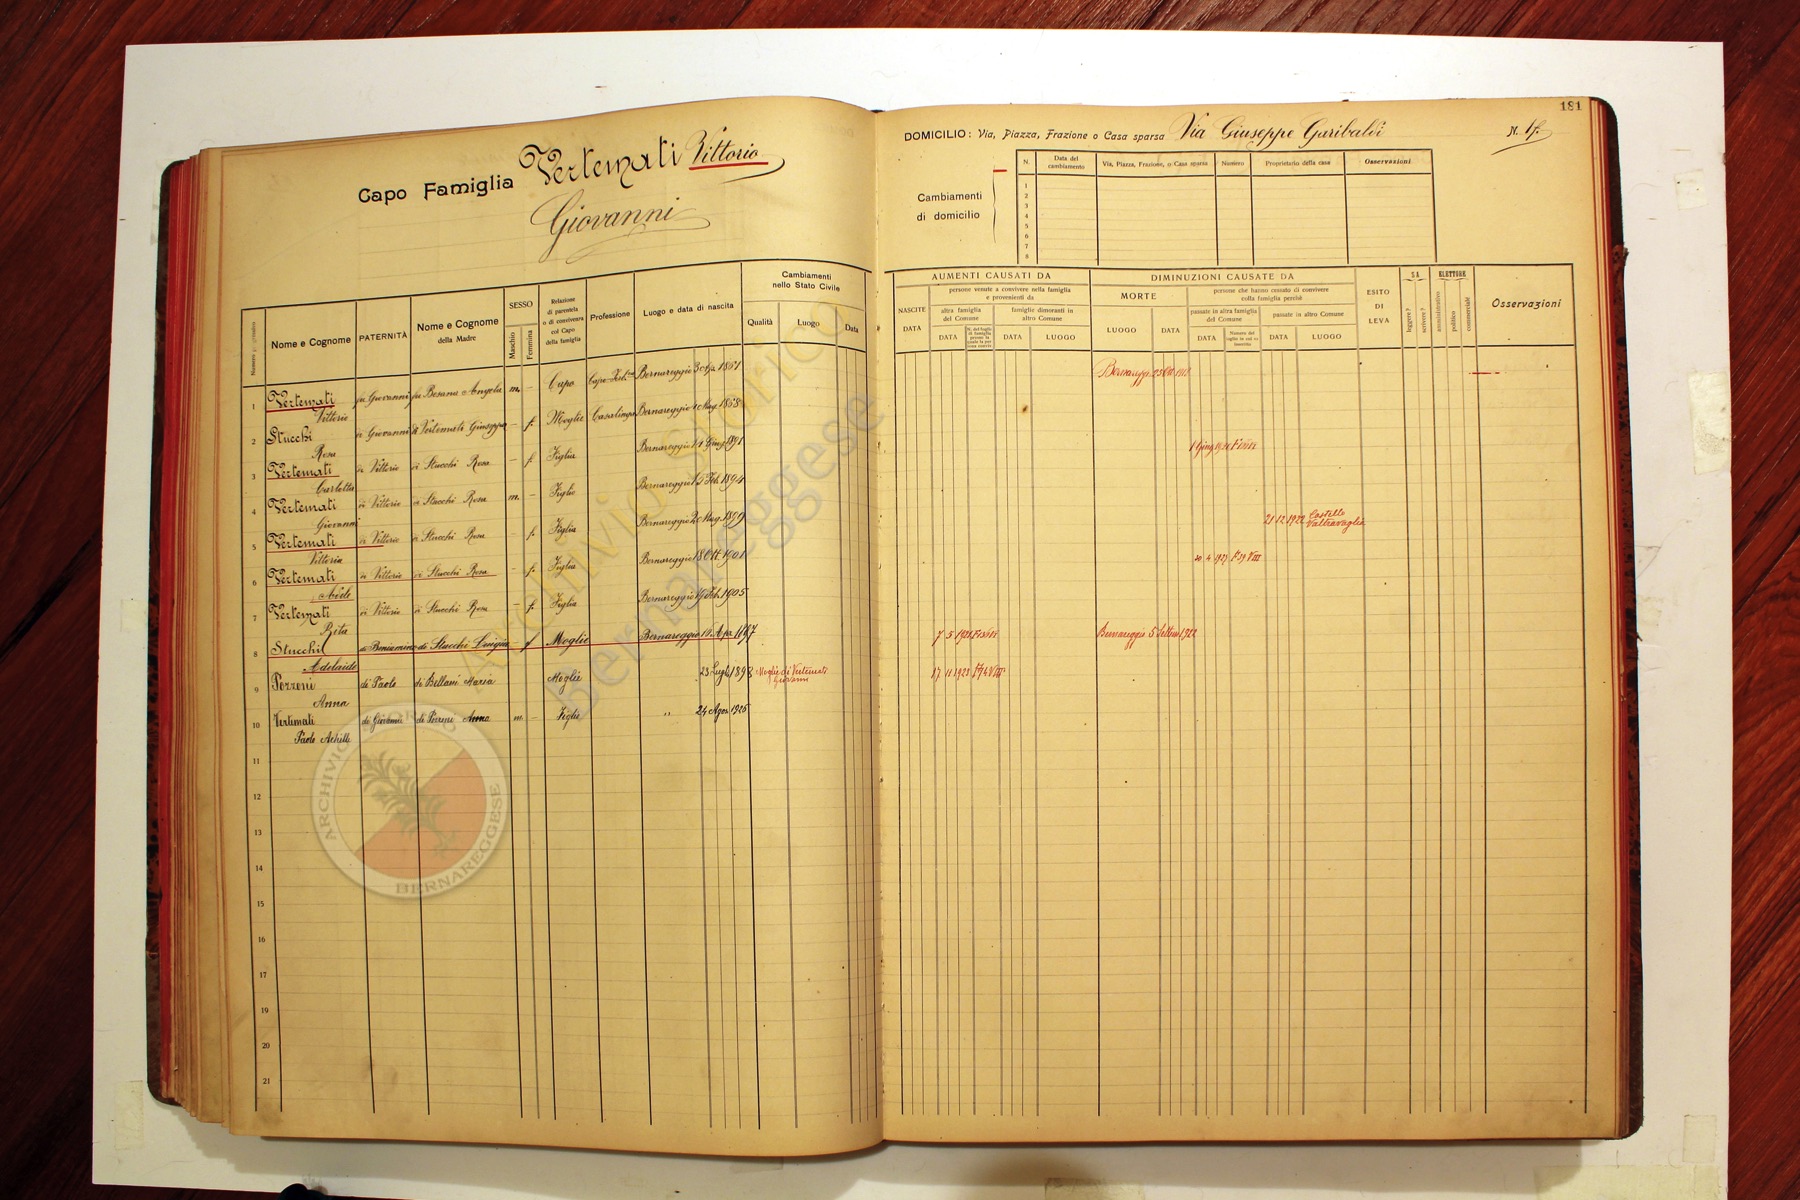 181
Capo Famiglia Vertemati Vittorio
Giovanni
DOMICILIO: Via, Piazza, Frazione o Casa sparsa Via Giuseppe Garibaldi N.
Cambiamenti di domicilio
N. Data del cambiamento Via, Piazza, Frazione, o Casa sparsa Numero Proprietario della casa Osservazioni
1
2
3
4
5
6
7
8
Numero progressivo Nome e Cognome PATERNITÀ Nome e Cognome della Madre SESSO Maschio Femmina Relazione di parentela o di convivenza col Capo della famiglia Professione Luogo e data di nascita Cambiamenti nello Stato Civile Qualità Luogo Data
AUMENTI CAUSATI DA
NASCITE DATA persone venute a convivere nella famiglia e provenienti da
altra famiglia del Comune DATA famiglie dimoranti in altro Comune DATA LUOGO
DIMINUZIONI CAUSATE DA
MORTE LUOGO DATA persone che hanno cessato di convivere colla famiglia perchè
passate in altra famiglia del Comune DATA passate in altro Comune DATA LUOGO
ESITO DI LEVA SA leggere? scrivere? ELETTORE amministrativo politico commerciale Osservazioni
1 Vertemati fu Giovanni fu Besana Angela m. – Capo Bernareggio 1861
Vittorio
2 Stucchi di Giovanni di Vertemati Giuseppa – f. Moglie Casalinga Bernareggio Mag. 1868
Rosa
3 Vertemati di Vittorio di Stucchi Rosa – f. Figlia Bernareggio Giug. 1891
Carlotta
4 Vertemati di Vittorio di Stucchi Rosa m. – Figlio Bernareggio Feb. 1894
Giovanni 21 12 1922 Castello Valtravaglia
5 Vertemati di Vittorio di Stucchi Rosa – f. Figlia Bernareggio Mag. 1899
Vittoria 20 4 1927
6 Vertemati di Vittorio di Stucchi Rosa – f. Figlia Bernareggio 18 Ott. 1901
Adele
7 Vertemati di Vittorio di Stucchi Rosa – f. Figlia Bernareggio Feb. 1905
Rita
8 Stucchi di Beniamino di Stucchi Luigia – f Moglie Bernareggio Apr. 7 5 1921 Bernareggio 5 Settem 1922
Adelaide
9 Pozzoni di Paolo di Bellani Maria Moglie 23 Lugl. 1898 Moglie di Vertemati Giovanni 17 11 1923
Anna
10 Vertemati di Giovanni di Pozzoni Anna m. – Figlio " 24 Agos 1925
Paolo Achille
11
12
13
14
15
16
17
18
19
20
21
Archivio Storico
Bernareggese
ARCHIVIO STORICO
BERNAREGGESE